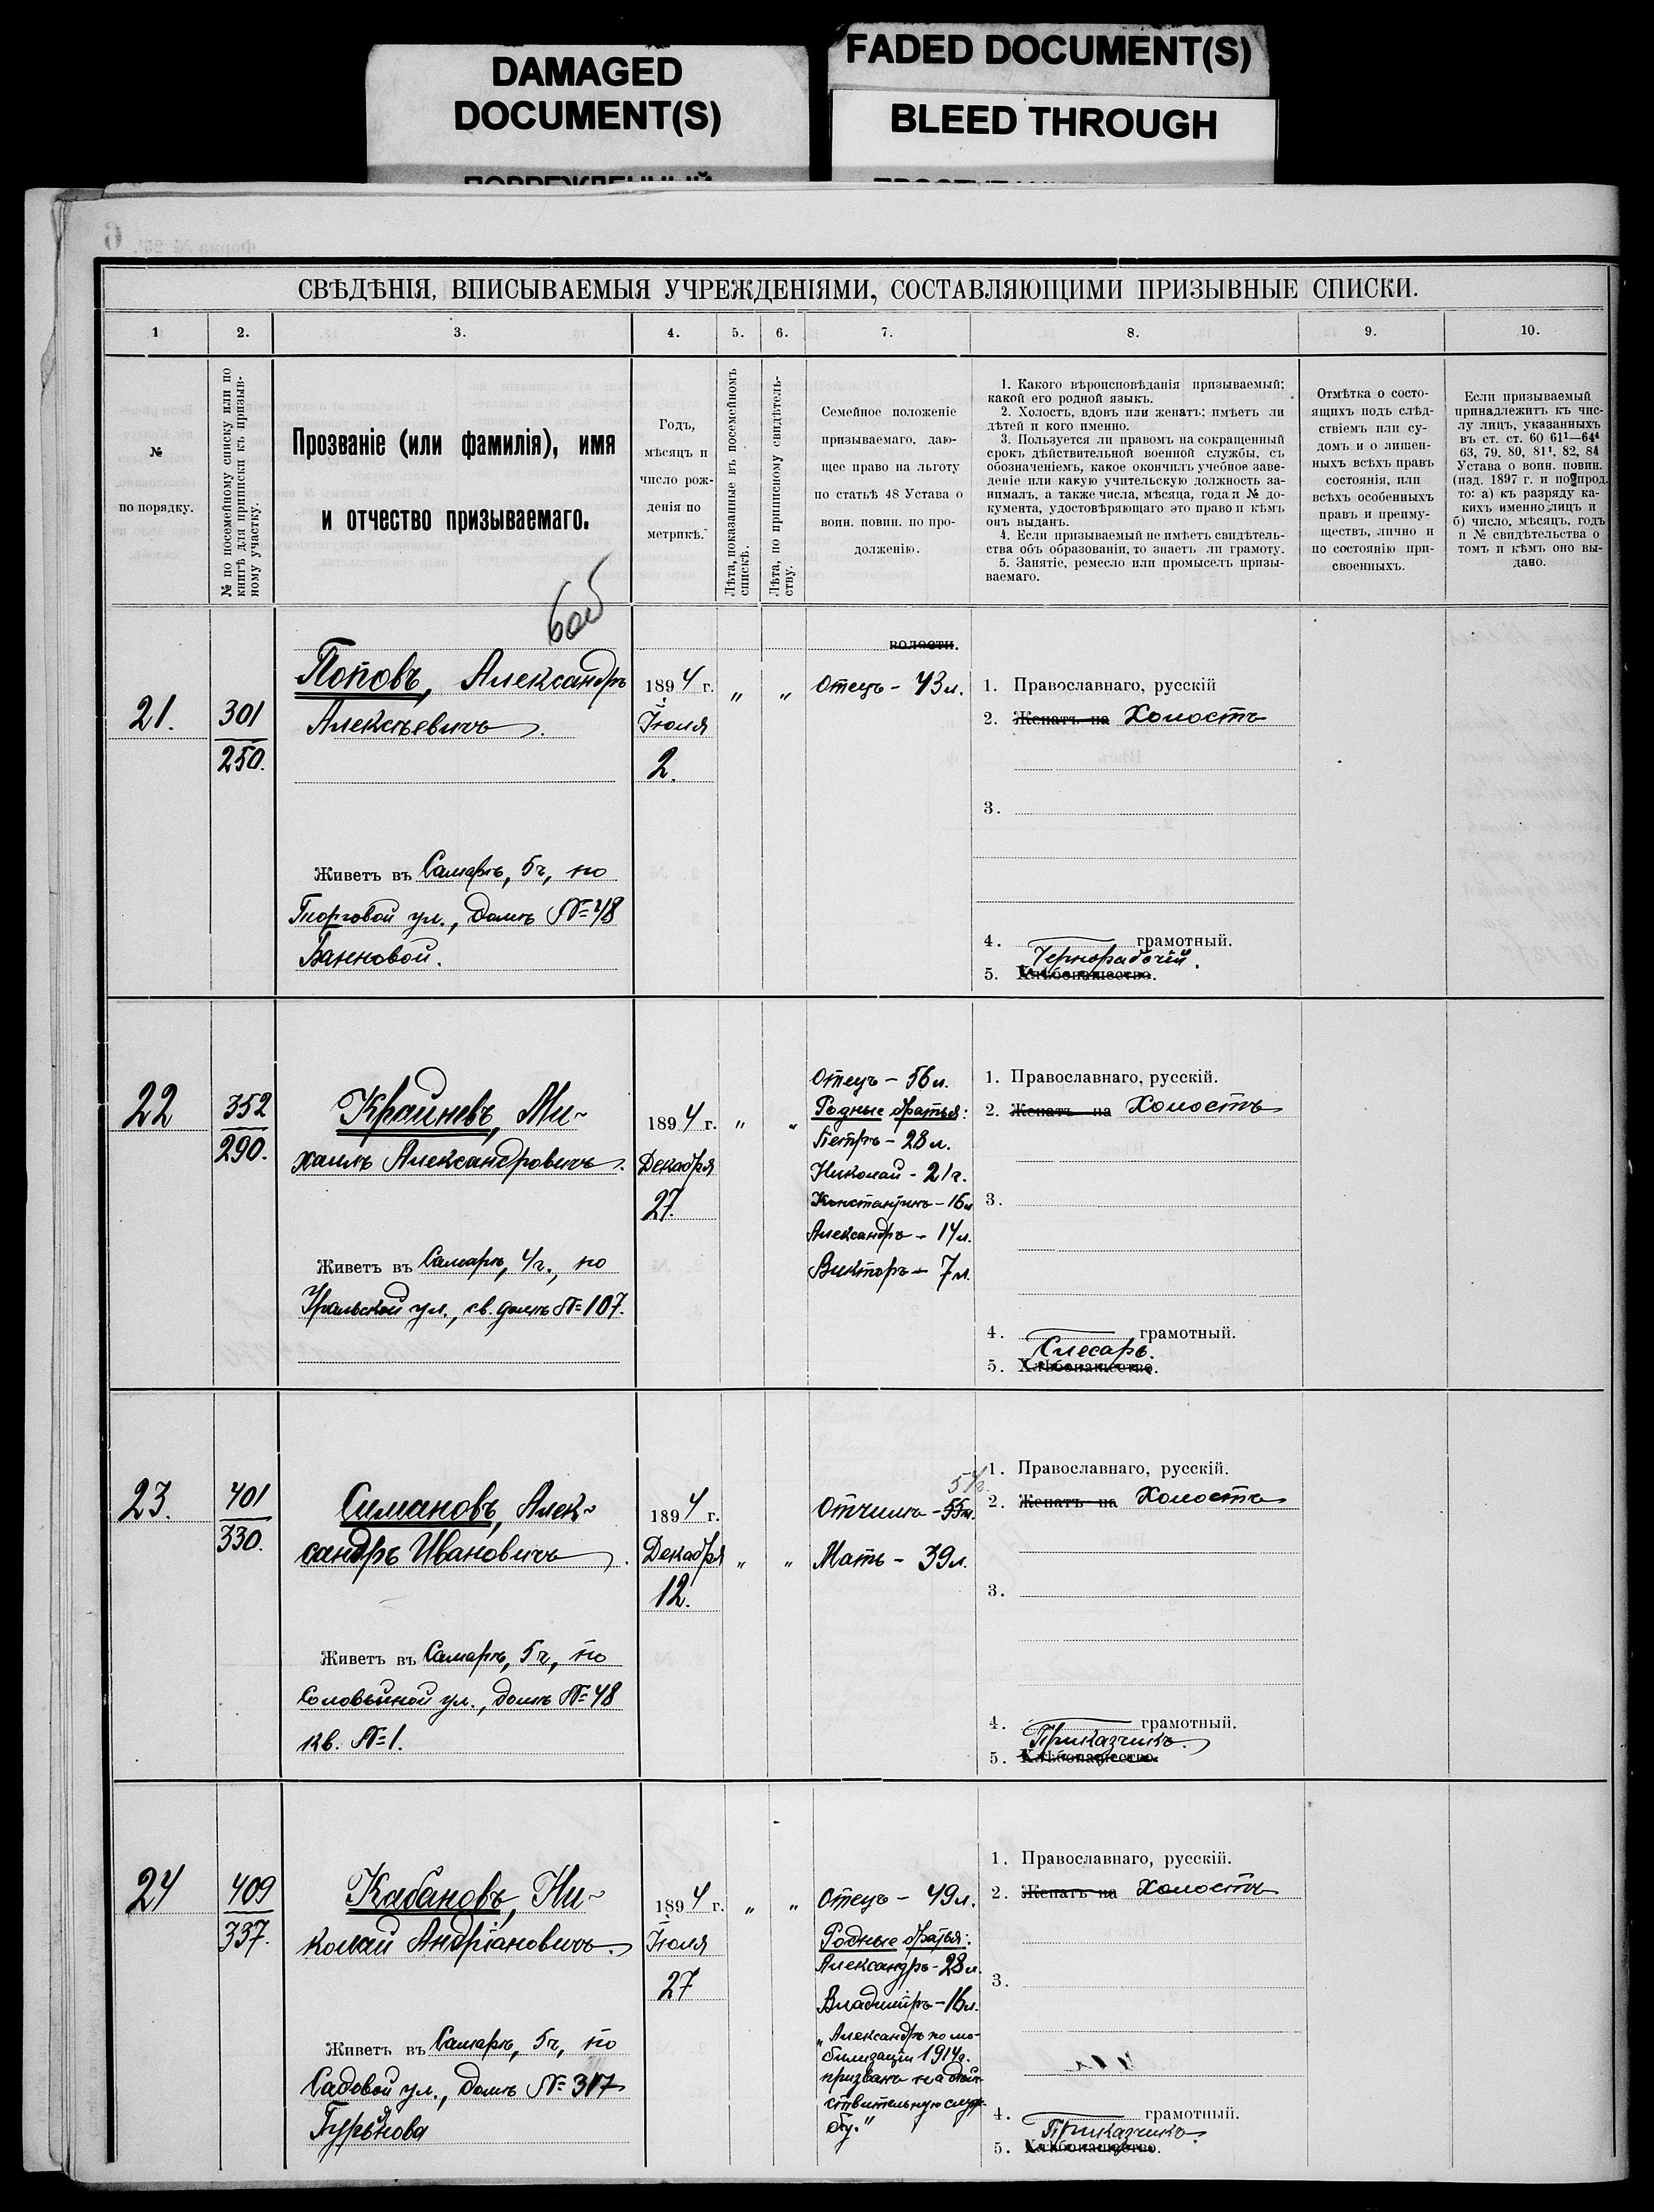 DAMAGED
DOCUMENT(S)
FADED DOCUMENT(S)
BLEED THROUGH
СВѢДѢНІЯ, ВПИСЫВАЕМЫЯ УЧРЕЖДЕНІЯМИ, СОСТАВЛЯЮЩИМИ ПРИЗЫВНЫЕ СПИСКИ.
1 2. 3. 4. 5. 6. 7. 8. 9. 10.
№
по порядку.
№ по посемейному списку или по
книгѣ для приписки къ призыв-
ному участку.
Прозваніе (или фамилія), имя
и отчество призываемаго.
Годъ,
мѣсяцъ и
число рож-
денія по
метрикѣ.
Лѣта, показанные въ посемейномъ
спискѣ.
Лѣта, по приписному свидѣтель-
ству.
Семейное положеніе
призываемаго, даю-
щее право на льготу
по статьѣ 48 Устава о
воин. повин. по про-
долженію.
1. Какого вѣроисповѣданія призываемый;
какой его родной языкъ.
2. Холостъ, вдовъ или женатъ; имѣетъ ли
дѣтей и кого именно.
3. Пользуется ли правомъ на сокращенный
срокъ дѣйствительной военной службы, съ
обозначеніемъ, какое окончилъ учебное заве-
деніе или какую учительскую должность за-
нималъ, а также числа, мѣсяца, года и № до-
кумента, удостовѣряющаго это право и кѣмъ
онъ выданъ.
4. Если призываемый не имѣетъ свидѣтель-
ства объ образованіи, то знаетъ ли грамоту.
5. Занятіе, ремесло или промыселъ призы-
ваемаго.
Отмѣтка о состо-
ящихъ подъ слѣд-
ствіемъ или су-
домъ и о лишен-
ныхъ всѣхъ правъ
состоянія, или
всѣхъ особенныхъ
правъ и преиму-
ществъ, лично и
по состоянію при-
своенныхъ.
Если призываемый
принадлежитъ къ чис-
лу лицъ, указанныхъ
въ ст. ст. 60 61¹—64⁴
63, 79, 80, 81¹, 82, 84
Устава о воин. повин.
(изд. 1897 г. и по прод.
то: а) къ разряду ка-
кихъ именно лицъ и
б) число, мѣсяцъ, годъ
и № свидѣтельства о
томъ и кѣмъ оно вы-
дано.
21.
301
250.
Поповъ, Александръ
Алексѣевичъ.
Живетъ въ Самарѣ, 5ч, по
ул., домъ №48
Ванновой.
1894 г.
Іюля
2.
" "
волости.
Отецъ - 43л.
1. Православнаго, русскій
2. Женатъ на Холостъ
3.
4. грамотный.
Чернорабочій.
5. Хлѣбопашество.
22
352
290.
Крайневъ, Ми-
хаилъ Александровичъ.
Живетъ въ Самарѣ, 4ч., по
Уральской ул., св. домъ №107.
1894 г.
Декабря
27.
" "
Отецъ - 56л.
Родные братья:
Петръ - 28л.
Николай - 21г.
Константинъ - 16л
Александръ - 14л.
Викторъ - 7л.
1. Православнаго, русскій.
2. Женатъ на Холостъ
3.
4. грамотный.
Слесарь.
5. Хлѣбопашество.
23.
401
330.
Симановъ, Алек-
сандръ Ивановичъ.
Живетъ въ Самарѣ, 5ч, по
Соловьиной ул., домъ №48
кв. №1.
1894 г.
Декабря
12.
" "
Отчимъ - 55л.
Мать - 39л.
1. Православнаго, русскій.
2. Женатъ на Холостъ
3.
4. грамотный.
Приказчикъ.
5. Хлѣбопашество.
24
409
337.
Кабановъ, Ни-
колай Андріановичъ.
Живетъ въ Самарѣ, 5ч, по
Садовой ул., домъ №317
Гурьянова
1894 г.
Іюля
27
" "
Отецъ - 49л.
Родные братья:
Александръ - 28л.
Владиміръ - 16л.
"Александръ по мо-
билизаціи 1914г.
призванъ на дѣй-
ствительную служ-
бу."
1. Православнаго, русскій.
2. Женатъ на Холостъ
3.
4. грамотный.
Приказчикъ.
5. Хлѣбопашество.